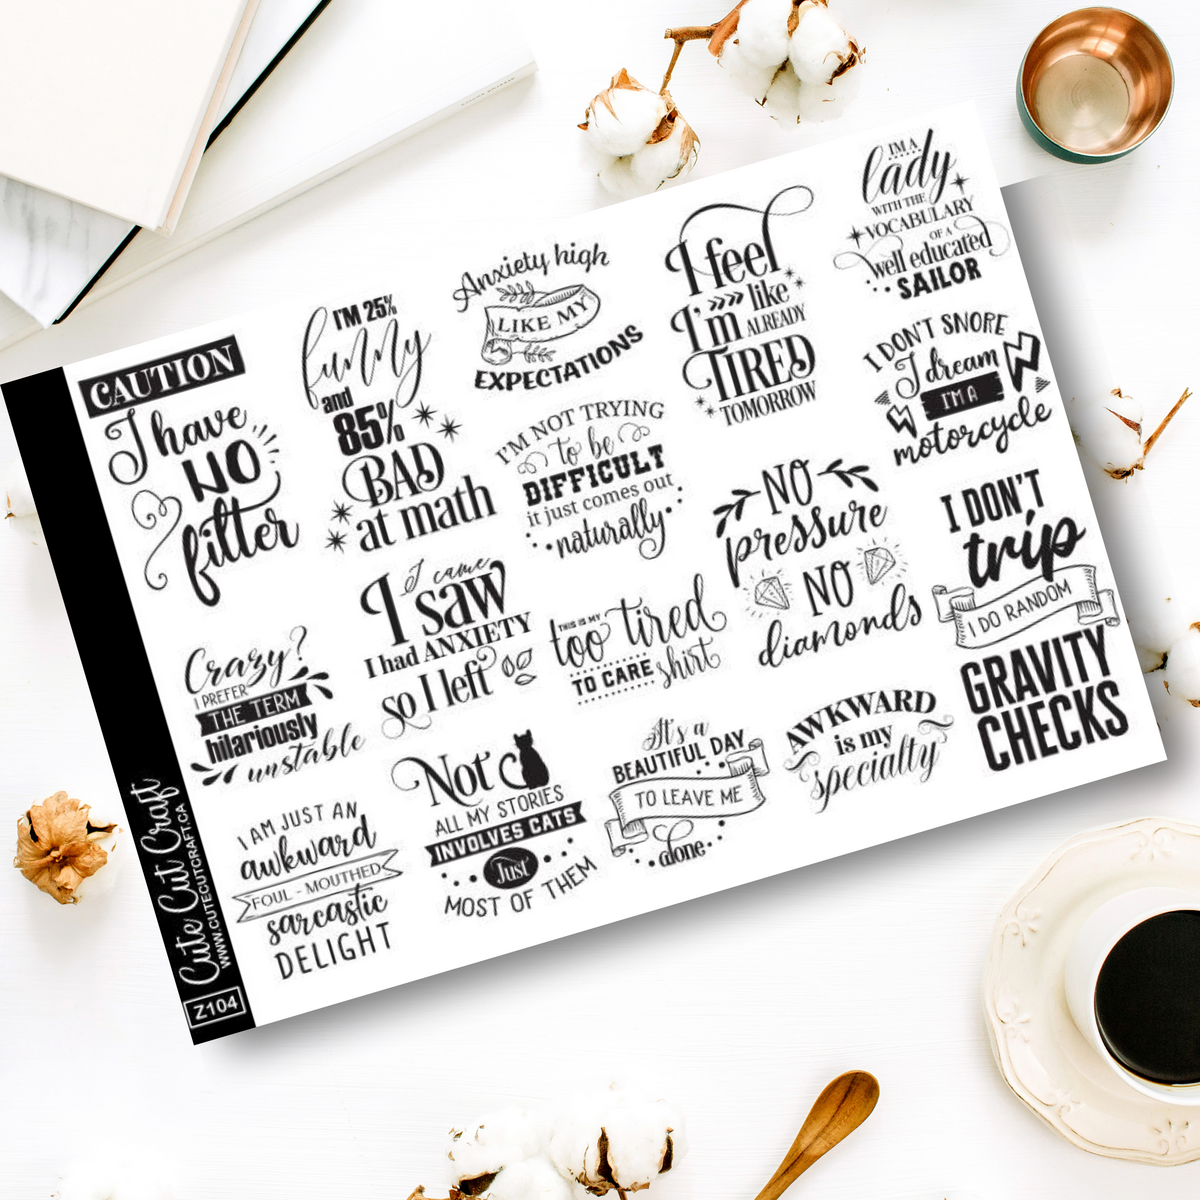 CAUTION
I have
NO
filter
I'M 25%
funny
and
85%
BAD
at math
Anxiety high
LIKE MY
EXPECTATIONS
I feel
like
I'm ALREADY
TIRED
TOMORROW
I'M A
lady
WITH THE
VOCABULARY
OF A
well educated
SAILOR
I DON'T SNORE
I dream
I'M A
motorcycle
I'M NOT TRYING
to be
DIFFICULT
it just comes out
naturally
NO
pressure
NO
diamonds
I DON'T
trip
I DO RANDOM
GRAVITY
CHECKS
Crazy?
I PREFER
THE TERM
hilariously
unstable
I came
I saw
I had ANXIETY
so I left
THIS IS MY
too tired
TO CARE shirt
I AM JUST AN
awkward
FOUL - MOUTHED
sarcastic
DELIGHT
Not
ALL MY STORIES
INVOLVES CATS
Just
MOST OF THEM
It's a
BEAUTIFUL DAY
TO LEAVE ME
alone
AWKWARD
is my
specialty
Cute Cut Craft
WWW.CUTECUTCRAFT.CA
Z104